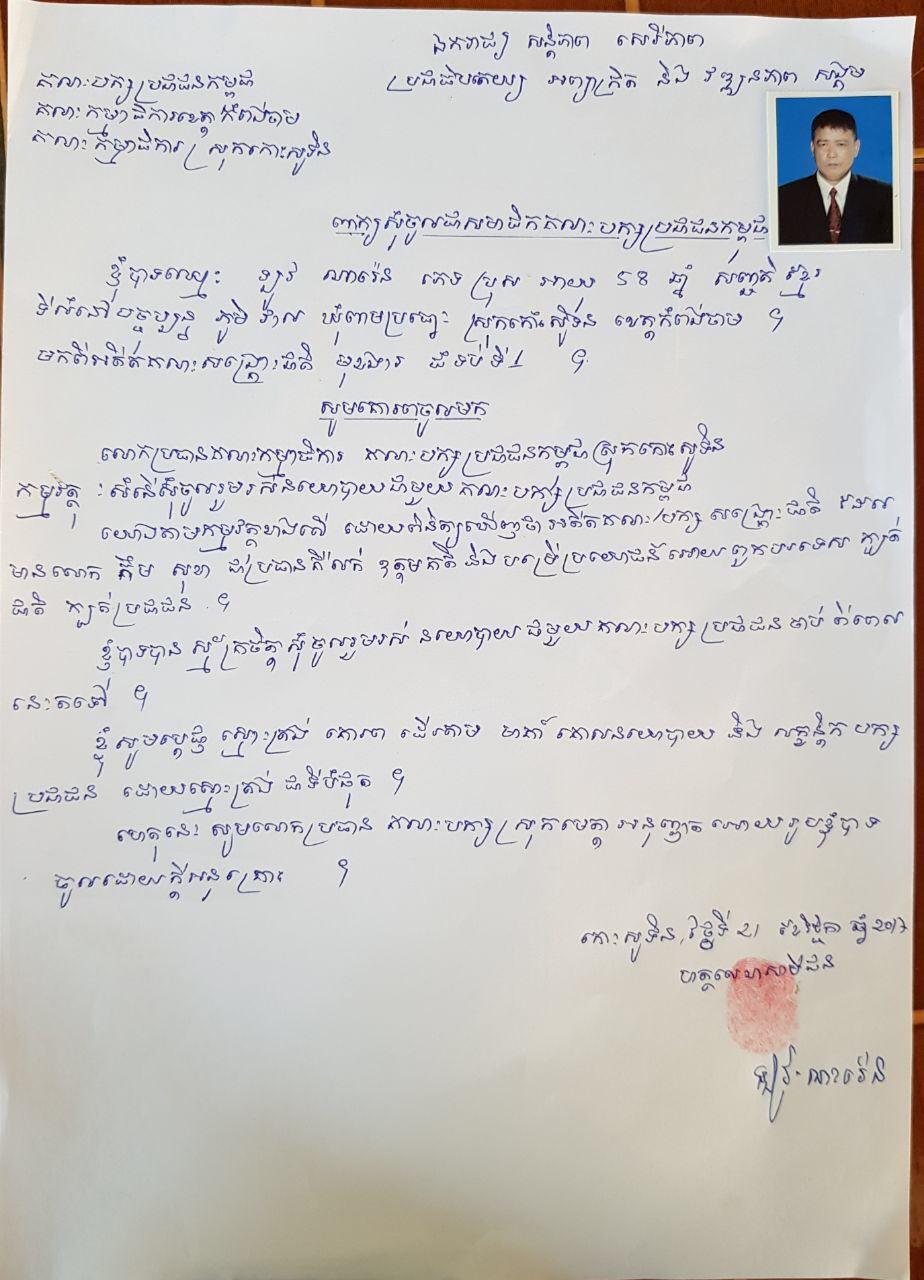 ឯករាជ្យ សន្តិភាព សេរីភាព
ប្រជាធិបតេយ្យ អព្យាក្រឹត និង វឌ្ឍនភាព សង្គម
គណៈបក្សប្រជាជនកម្ពុជា
គណៈកម្មាធិការខេត្តកំពង់ចាម
គណៈកម្មាធិការ ស្រុកកោះសូទិន
ពាក្យសុំចូលជាសមាជិកគណៈបក្សប្រជាជនកម្ពុជា
ខ្ញុំបាទឈ្មោះ ឡូវ ណារ៉េន ភេទ ប្រុស អាយុ 58 ឆ្នាំ សញ្ជាតិ ខ្មែរ
ទីលំនៅបច្ចុប្បន្ន ភូមិ វាល ឃុំពាមប្រធ្នោះ ស្រុកកោះសូទិន ខេត្តកំពង់ចាម ។
មកពីអតីតគណៈសង្គ្រោះជាតិ មុខងារ ជំទប់ទី1 ។
សូមគោរពចូលមក
លោកប្រធានគណៈកម្មាធិការ គណៈបក្សប្រជាជនកម្ពុជាស្រុកកោះសូទិន
កម្មវត្ថុ : សំនើសុំចូលរួមរស់នយោបាយជាមួយគណៈបក្សប្រជាជនកម្ពុជា
យោងតាមកម្មវត្ថុខាងលើ ដោយពិនិត្យឃើញថា អតីតគណៈបក្សសង្គ្រោះជាតិ ដែល
មានលោក កឹម សុខា ជាប្រធានគឺលក់ ឧត្តមគតិ និង បម្រើប្រយោជន៍អោយពួកបរទេស ក្បត់
ជាតិ ក្បត់ប្រជាជន ។
ខ្ញុំបាទបាន ស្ម័គ្រចិត្តសុំចូលរួមរស់ នយោបាយ ជាមួយគណៈបក្សប្រជាជន ចាប់ ពីពេល
នេះតទៅ ។
ខ្ញុំសូមប្តេជ្ញា ស្មោះត្រង់ គោរព ដើរតាម មាគ៌ា គោលនយោបាយ និង លក្ខន្តិក បក្ស
ប្រជាជន ដោយស្មោះត្រង់ ជាទីបំផុត ។
ហេតុនេះ សូមលោកប្រធាន គណៈបក្សស្រុកមេត្តា អនុញ្ញាត អោយរូបខ្ញុំបាទ
ចូលដោយក្តីអនុគ្រោះ ។
កោះសូទិន, ថ្ងៃទី 21 ខែវិច្ឆិកា ឆ្នាំ 2017
ហត្ថលេខាសាមីជន
ឡូវ ណារ៉េន